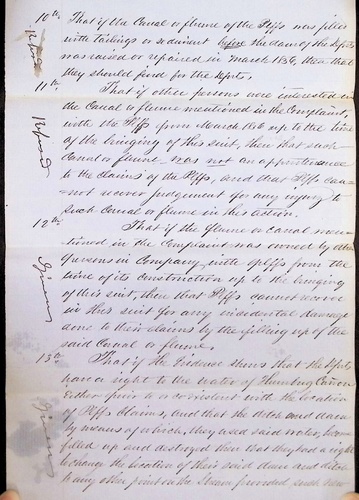 10th That if the Canal or flume of the Plffs was filled
with tailings or sediment before the dam of the Defts
was raised or repaired in March 1856, then that
they should find for the Defts.
11th That if other persons were interested in
Refused
the Canal or flume mentioned in the Complaint,
with the Plffs from March 1856 up to the time
of the bringing of this suit, then that such
Canal or flume was not an appurtenance
to the claims of the Plffs, and that Plffs can-
not recover judgement for any injury to
such Canal or flume in this action.
12th That if the flume or canal men-
tioned in the Complaint was owned by other
Given
persons in Company with plffs from the
time of its construction up to the bringing
of this suit, then that Plffs cannot recover
in this suit for any incidental damage
done to their claims by the filling up of the
said Canal or flume.
13th That if the Evidence shows that the Defts
Given
have a right to the water of Canon
Either prior to or coincident with the location
of Plffs Claims, and that the ditch and dam
by means of which, they used said water, became
filled up and destroyed then that they had a right
to change the location of their said dam and ditch
to any other point on the Stream provided such